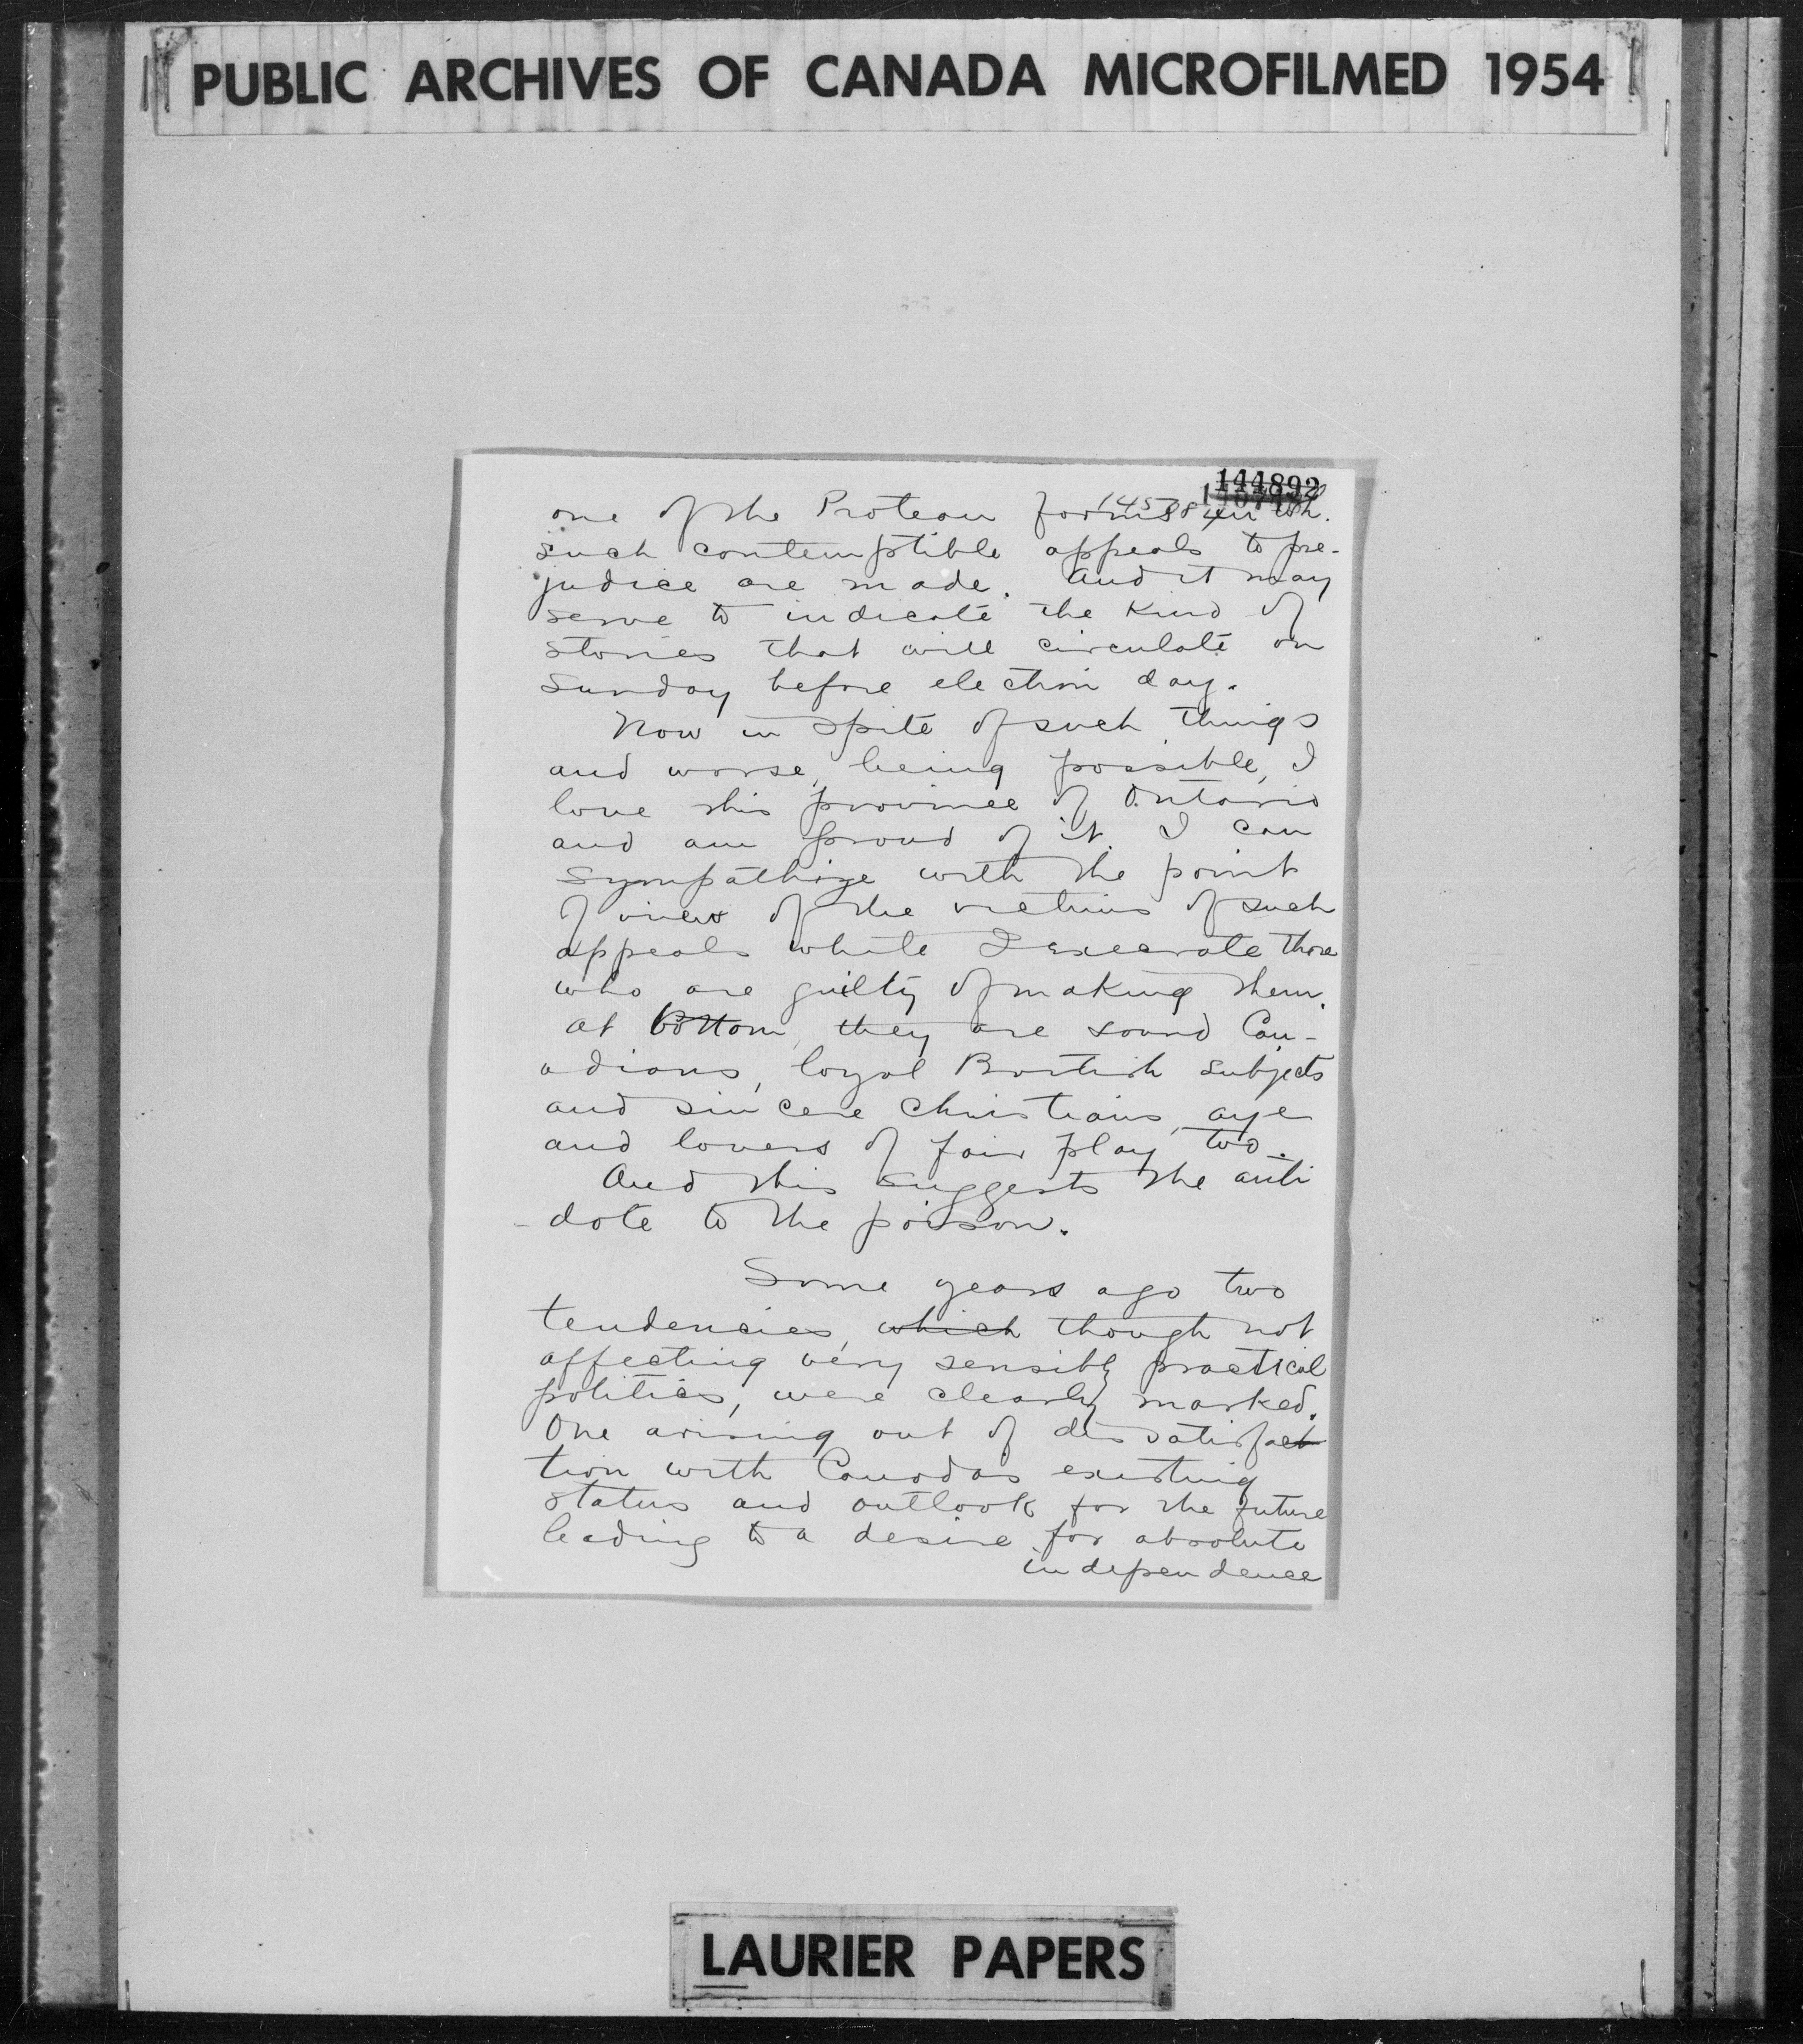 PUBLIC ARCHIVES OF CANADA MICROFILMED 1954
144892
one of the Protean forms in wh.
such contemptible appeals to pre-
judice are made. And it may
serve to indicate the kind of
stories that will circulate on
Sunday before election day.
Now in spite of such things
and worse, being possible, I
love this province of Ontario
and am proud of it. I can
sympathize with the point
of view of the victims of such
appeals while I execrate those
who are guilty of making them.
At bottom, they are sound Can-
adians, loyal British subjects
and sincere Christians, aye
and lovers of fair play too.
And this suggests the anti
-dote to the poison.
Some years ago two
tendencies, which though not
affecting very sensibly practical
politics, were clearly marked.
One arising out of dissatisfact
tion with Canadas existing
status and outlook for the future
leading to a desire for absolute
independence
LAURIER PAPERS